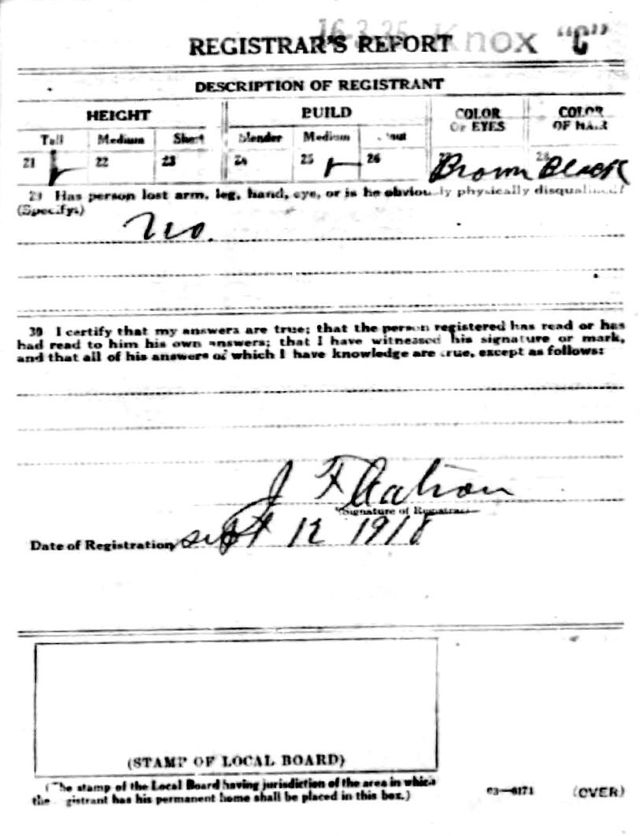 16-3-25 Knox "C"
REGISTRAR'S REPORT
DESCRIPTION OF REGISTRANT
HEIGHT BUILD COLOR OF EYES COLOR OF HAIR
Tall Medium Short Slender Medium Stout
21 ✓ 22 23 24 25 ✓ 26 Brown 28 Black
29 Has person lost arm, leg, hand, eye, or is he obviously physically disqualified?
(Specify.)
No.
30 I certify that my answers are true; that the person registered has read or has
had read to him his own answers; that I have witnessed his signature or mark,
and that all of his answers of which I have knowledge are true, except as follows:
J F
Signature of Registrar
Date of Registration Sept 12 1918
(STAMP OF LOCAL BOARD)
(The stamp of the Local Board having jurisdiction of the area in which
the registrant has his permanent home shall be placed in this box.)
03—6171 (OVER)